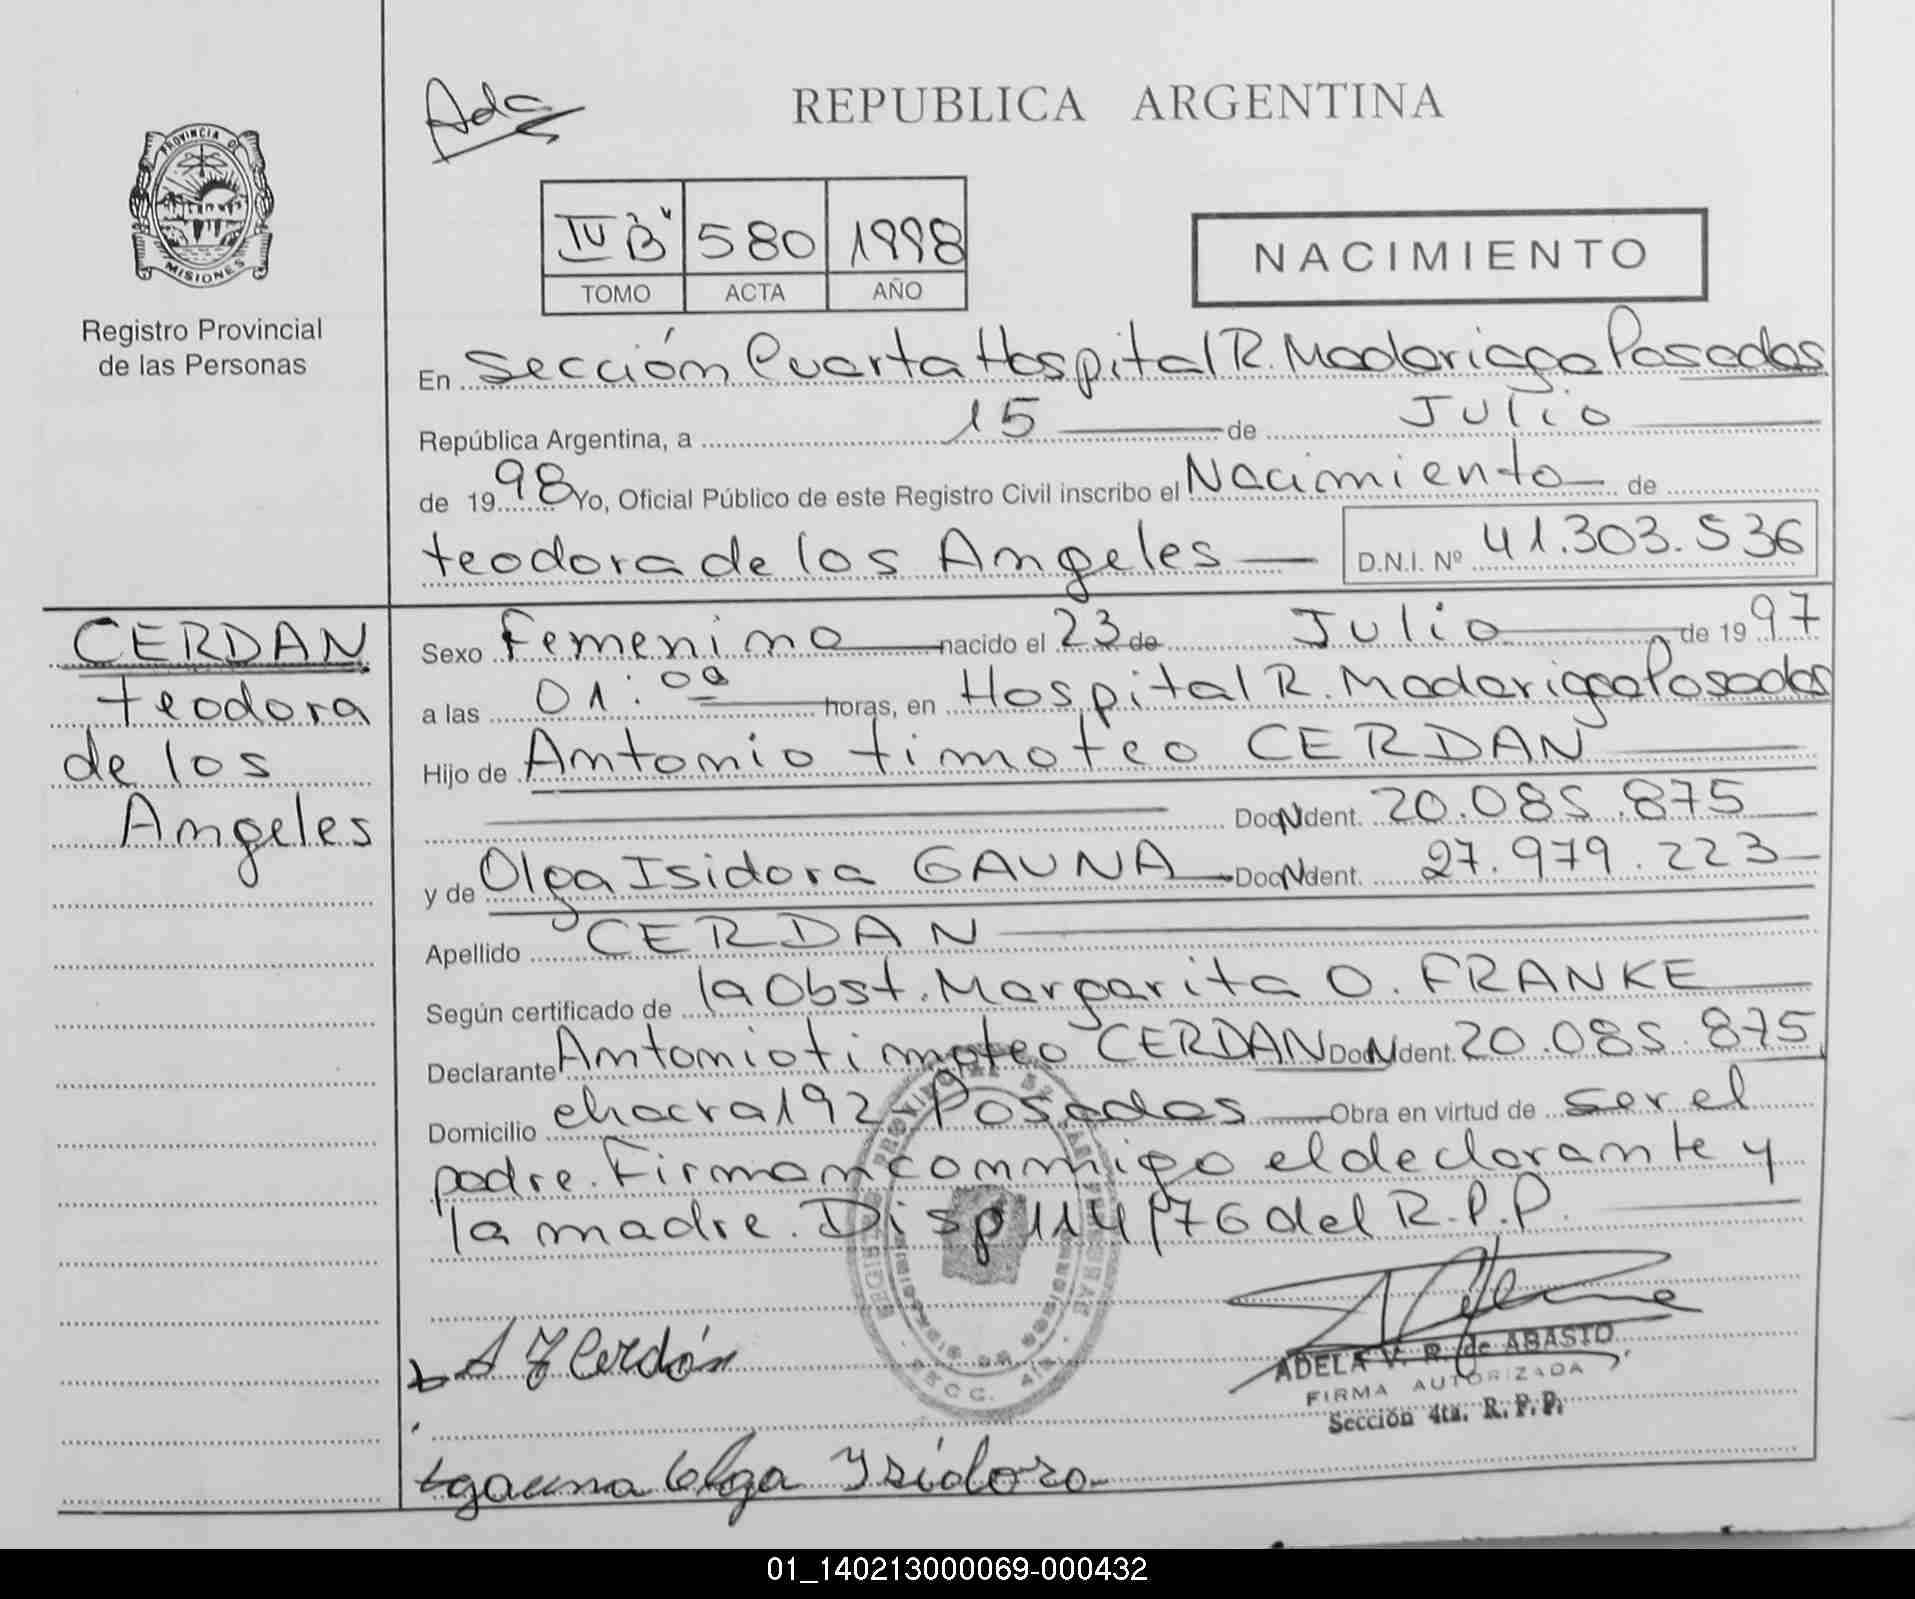 Ada
REPUBLICA ARGENTINA
PROVINCIA DE
MISIONES
Registro Provincial
de las Personas
IV "B" 580 1998
TOMO ACTA AÑO
NACIMIENTO
En Sección Cuarta Hospital R. Madariaga Posadas
República Argentina, a 15 de Julio
de 1998 Yo, Oficial Público de este Registro Civil inscribo el Nacimiento de
teodora de los Angeles D.N.I. Nº 41.303.536
CERDAN
teodora
de los
Angeles
Sexo Femenino nacido el 23 de Julio de 1997
a las 01:00 horas, en Hospital R. Madariaga Posadas
Hijo de Antonio timoteo CERDAN
Doc N Ident. 20.085.875
y de Olga Isidora GAUNA Doc N Ident. 27.979.223
Apellido CERDAN
Según certificado de la Obst. Margarita O. FRANKE
Declarante Antonio timoteo CERDAN Doc N Ident. 20.085.875
Domicilio chacra 192 Posadas Obra en virtud de ser el
padre. Firman conmigo el declarante y
la madre. Disp 114/76 del R.P.P.
A T Cerdán
ADELA V. R. de ABASTO
FIRMA AUTORIZADA
Sección 4ta. R. P. P.
gauna Olga Isidora
01_140213000069-000432